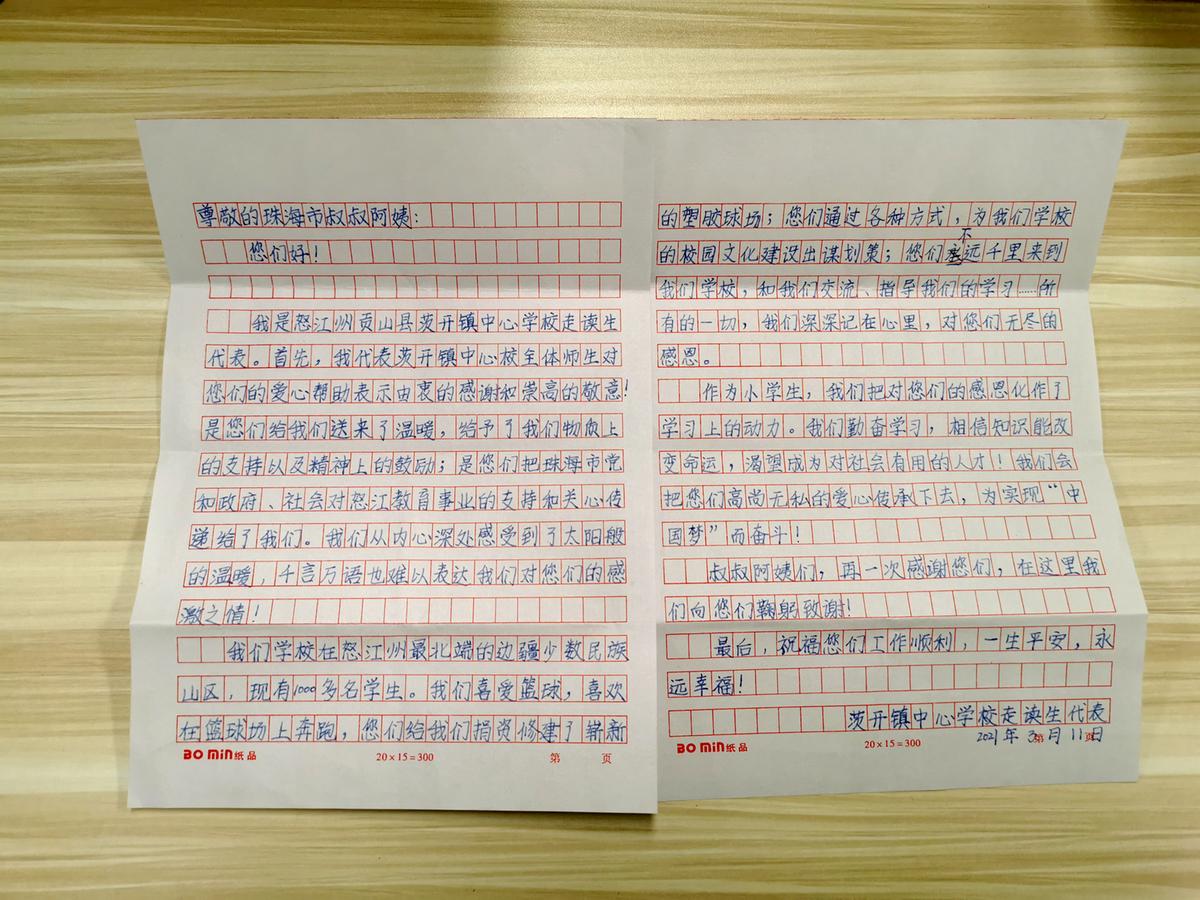 尊敬的珠海市叔叔阿姨：
您们好！
我是怒江州贡山县茨开镇中心学校走读生
代表。首先，我代表茨开镇中心校全体师生对
您们的爱心帮助表示由衷的感谢和崇高的敬意！
是您们给我们送来了温暖，给予了我们物质上
的支持以及精神上的鼓励；是您们把珠海市党
和政府、社会对怒江教育事业的支持和关心传
递给了我们。我们从内心深处感受到了太阳般
的温暖，千言万语也难以表达我们对您们的感
激之情！
我们学校在怒江州最北端的边疆少数民族
山区，现有1000多名学生。我们喜爱篮球，喜欢
在篮球场上奔跑，您们给我们捐资修建了崭新
BO MIN 纸品 20×15=300 第 页
的塑胶球场；您们通过各种方式，为我们学校
的校园文化建设出谋划策；您们不远千里来到
我们学校，和我们交流、指导我们的学习……所
有的一切，我们深深记在心里，对您们无尽的
感恩。
作为小学生，我们把对您们的感恩化作了
学习上的动力。我们勤奋学习，相信知识能改
变命运，渴望成为对社会有用的人才！我们会
把您们高尚无私的爱心传承下去，为实现“中
国梦”而奋斗！
叔叔阿姨们，再一次感谢您们，在这里我
们向您们鞠躬致谢！
最后，祝福您们工作顺利，一生平安，永
远幸福！
茨开镇中心学校走读生代表
2021年3月11日
BO MIN 纸品 20×15=300 第 页